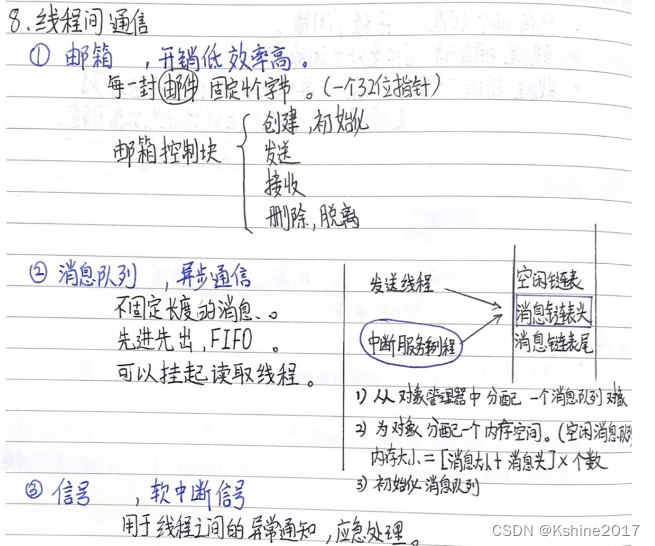 8.线程间通信
① 邮箱 ,开销低效率高。
每一封邮件固定4个字节。(一个32位指针)
邮箱控制块
创建,初始化
发送
接收
删除,脱离
② 消息队列 ,异步通信
不固定长度的消息、。
先进先出,FIFO 。
可以挂起读取线程。
发送线程
中断服务例程
空闲链表
消息链表头
消息链表尾
1) 从对象管理器中分配一个消息队列对象
2) 为对象分配一个内存空间。(空闲消息队
内存大小=[消息大小+消息头]×个数
3) 初始化消息队列
③ 信号 ,软中断信号
用于线程之间的异常通知,应急处理。
CSDN @Kshine2017